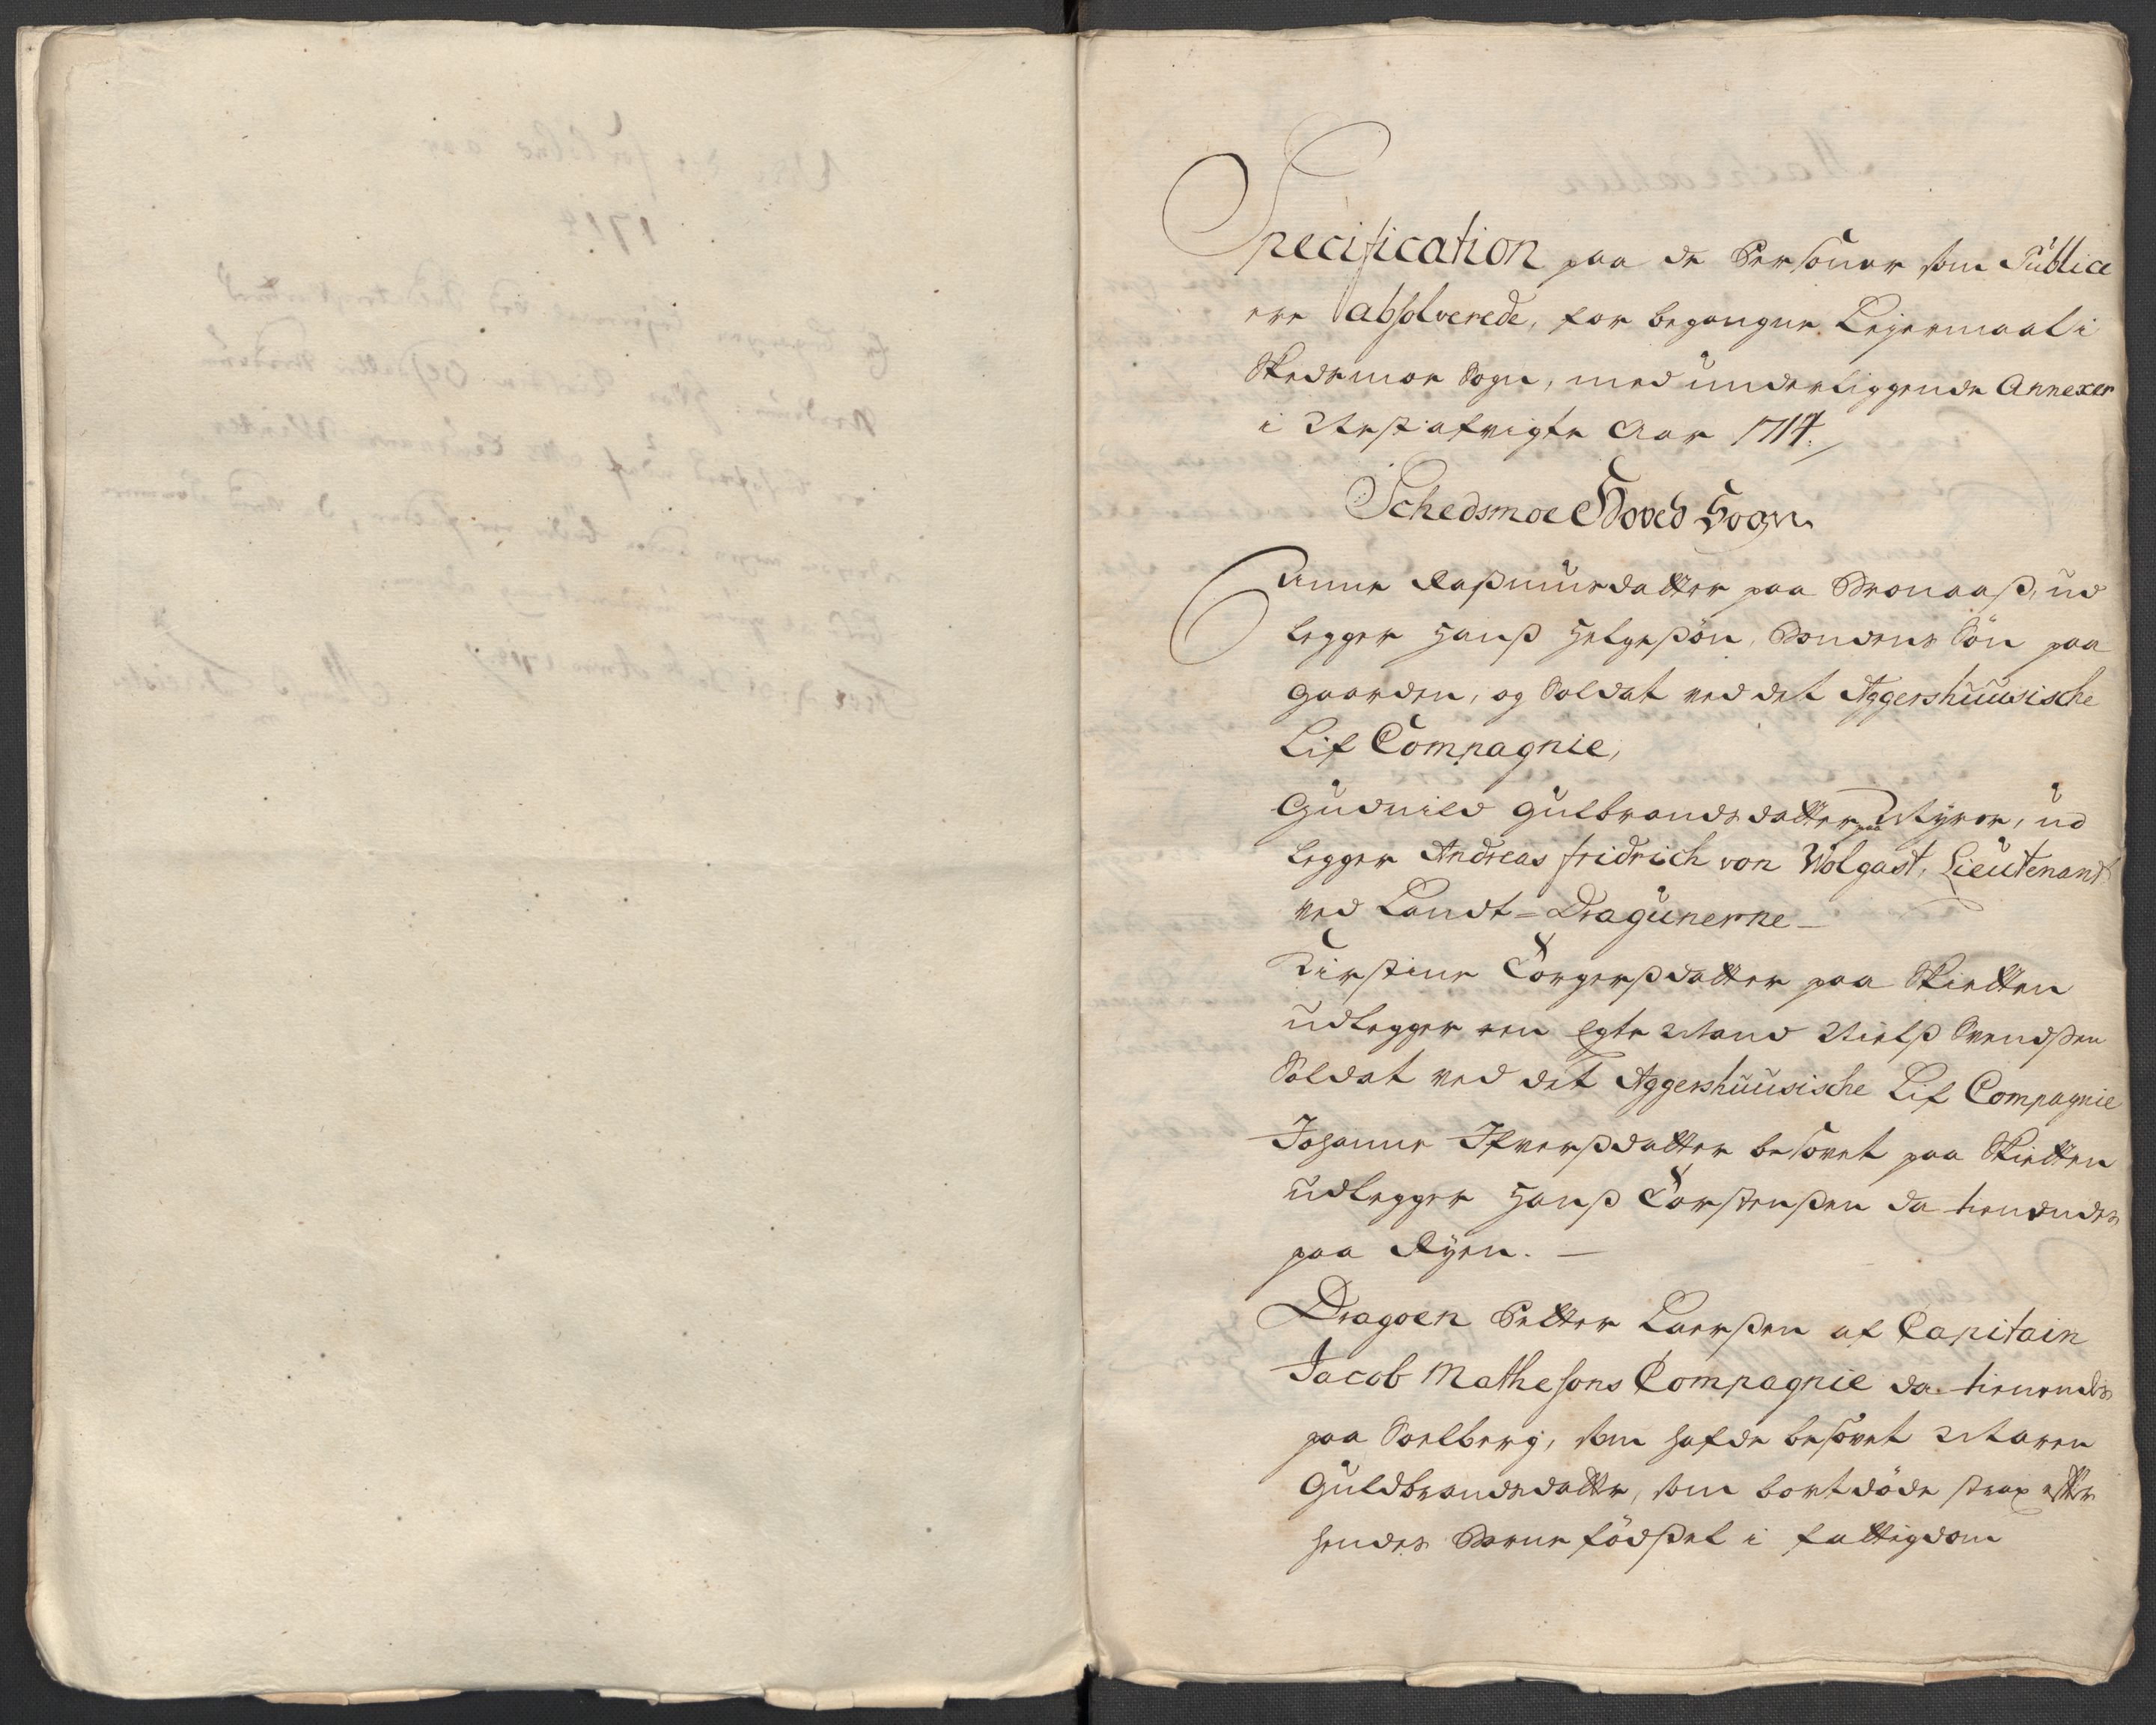 Specification paa de Persouer som Publice
ere absolverede, for begangne Lejermaal i
Skedsmoe Sogn, med underliggende Annexer
i Nest afvigte Aar 1714.
Schedsmoe Hoved Sogn
Anne Rasmusdatter paa Bronaas, ud
legger Hanß Helgeßøn, Bondens Søn paa
gaarden, og Soldat ved det Aggershuusische
Lif Compagnie,
Gudnild Gulbrandsdatter paa Myrer, ud
legger Andreas fridrich von Wolgast, Lieutenant
ved Landt-Dragunerne -
Kirstine Torgerßdatter paa Skietten
udlegger een Egte Mand Nielß Svendßen
Soldat ved det Aggershuusische Lif Compagnie
Johanne Ifverßdatter besovet paa Skietten
udlegger Hanß Torstenßen da tienendes
paa Ryen. -
Dragoen Petter Larßen af Capitain
Jacob Mathesons Compagnie da tienendes
paa Soelberg, som hafde besovet Maren
Guldbrandsdatter, som bortdøde strax efter
hendes Barne fødßel i fattigdom